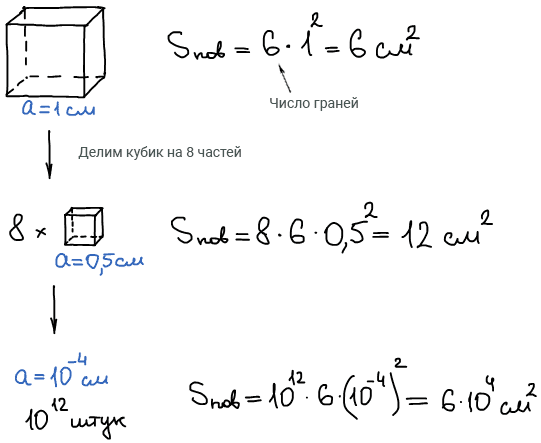 Sпов = 6 · 1² = 6 см²
Число граней
a = 1 см
Делим кубик на 8 частей
8 × Sпов = 8 · 6 · 0,5² = 12 см²
a = 0,5 см
a = 10⁻⁴ см
10¹² штук
Sпов = 10¹² · 6 · (10⁻⁴)² = 6 · 10⁴ см²